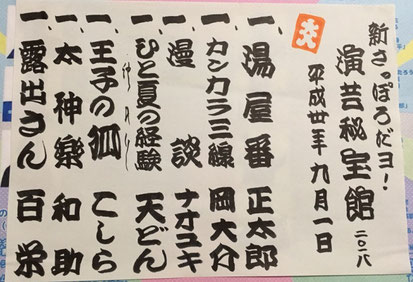 新さっぽろだヨ!
演芸秘宝館 二〇一八
平成卅年 九月一日
一、湯屋番 正太郎
一、カンカラ三線 岡大介
一、漫談 ナオユキ
一、ひと夏の経験 天どん
仲入り
一、王子の狐 こしら
一、太神樂 和助
一、露出さん 百栄